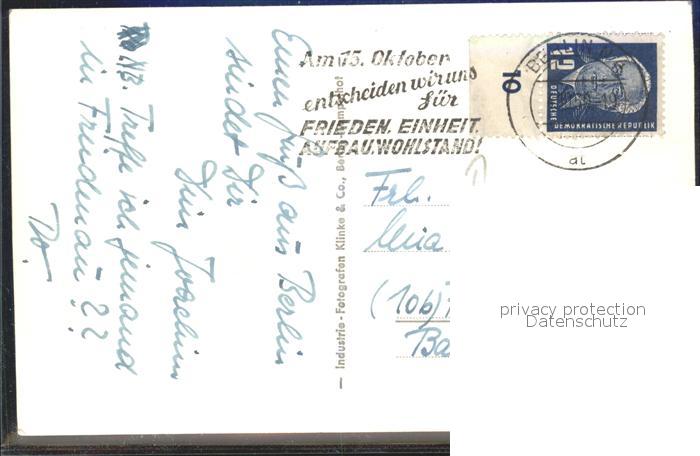 Am 15. Oktober
entscheiden wir uns
für
FRIEDEN. EINHEIT.
AUFBAU. WOHLSTAND!
10
12
DEUTSCHE
DEMOKRATISCHE REPUBLIK
BERLIN
at
Einen Gruß aus Berlin
sendet Dir
Dein Joachim
NB. Treffe ich jemand
in Friedenau??
D.O.
— Industrie-Fotografen Klinke & Co., Berlin
Frl.
(10b)
privacy protection
Datenschutz